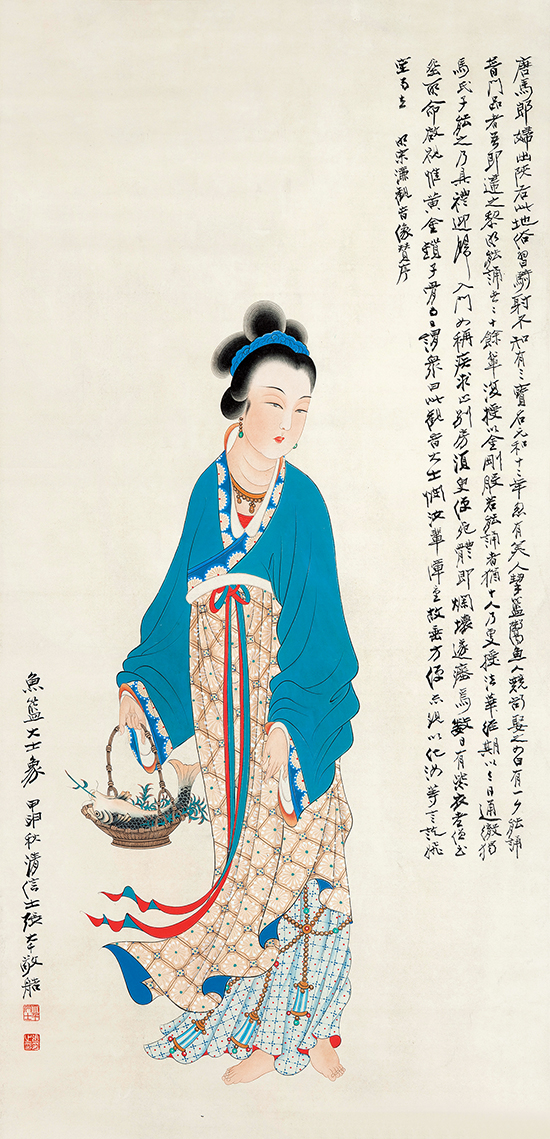 唐馬郎婦出陝右此地俗習騎射不知有三寶名元和十二年忽有美人挈籃鬻魚人競欲娶之女曰有一夕能誦
普門品者吾即適之黎明能誦者二十餘輩復授以金剛般若能誦者猶十人乃更授法華經期以三日通徹獨
馬氏子能之乃具禮迎歸入門女稱疾求止別房須臾便死體即爛壞遂瘞焉數日有紫衣老僧至
塟所命啟視惟黃金鎖子骨謂眾曰此觀音大士憫汝輩障重故垂方便示現以化汝等言訖飛
空而去 明宋濂觀音像贊序
魚籃大士象 甲申秋清信士張大千敬